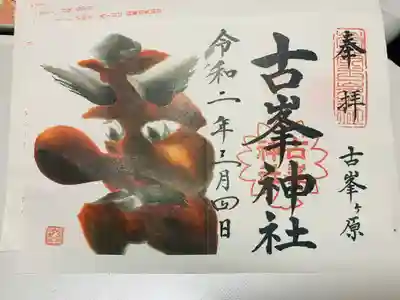 奉拝
古峯ヶ原
古峯神社
令和二年三月四日